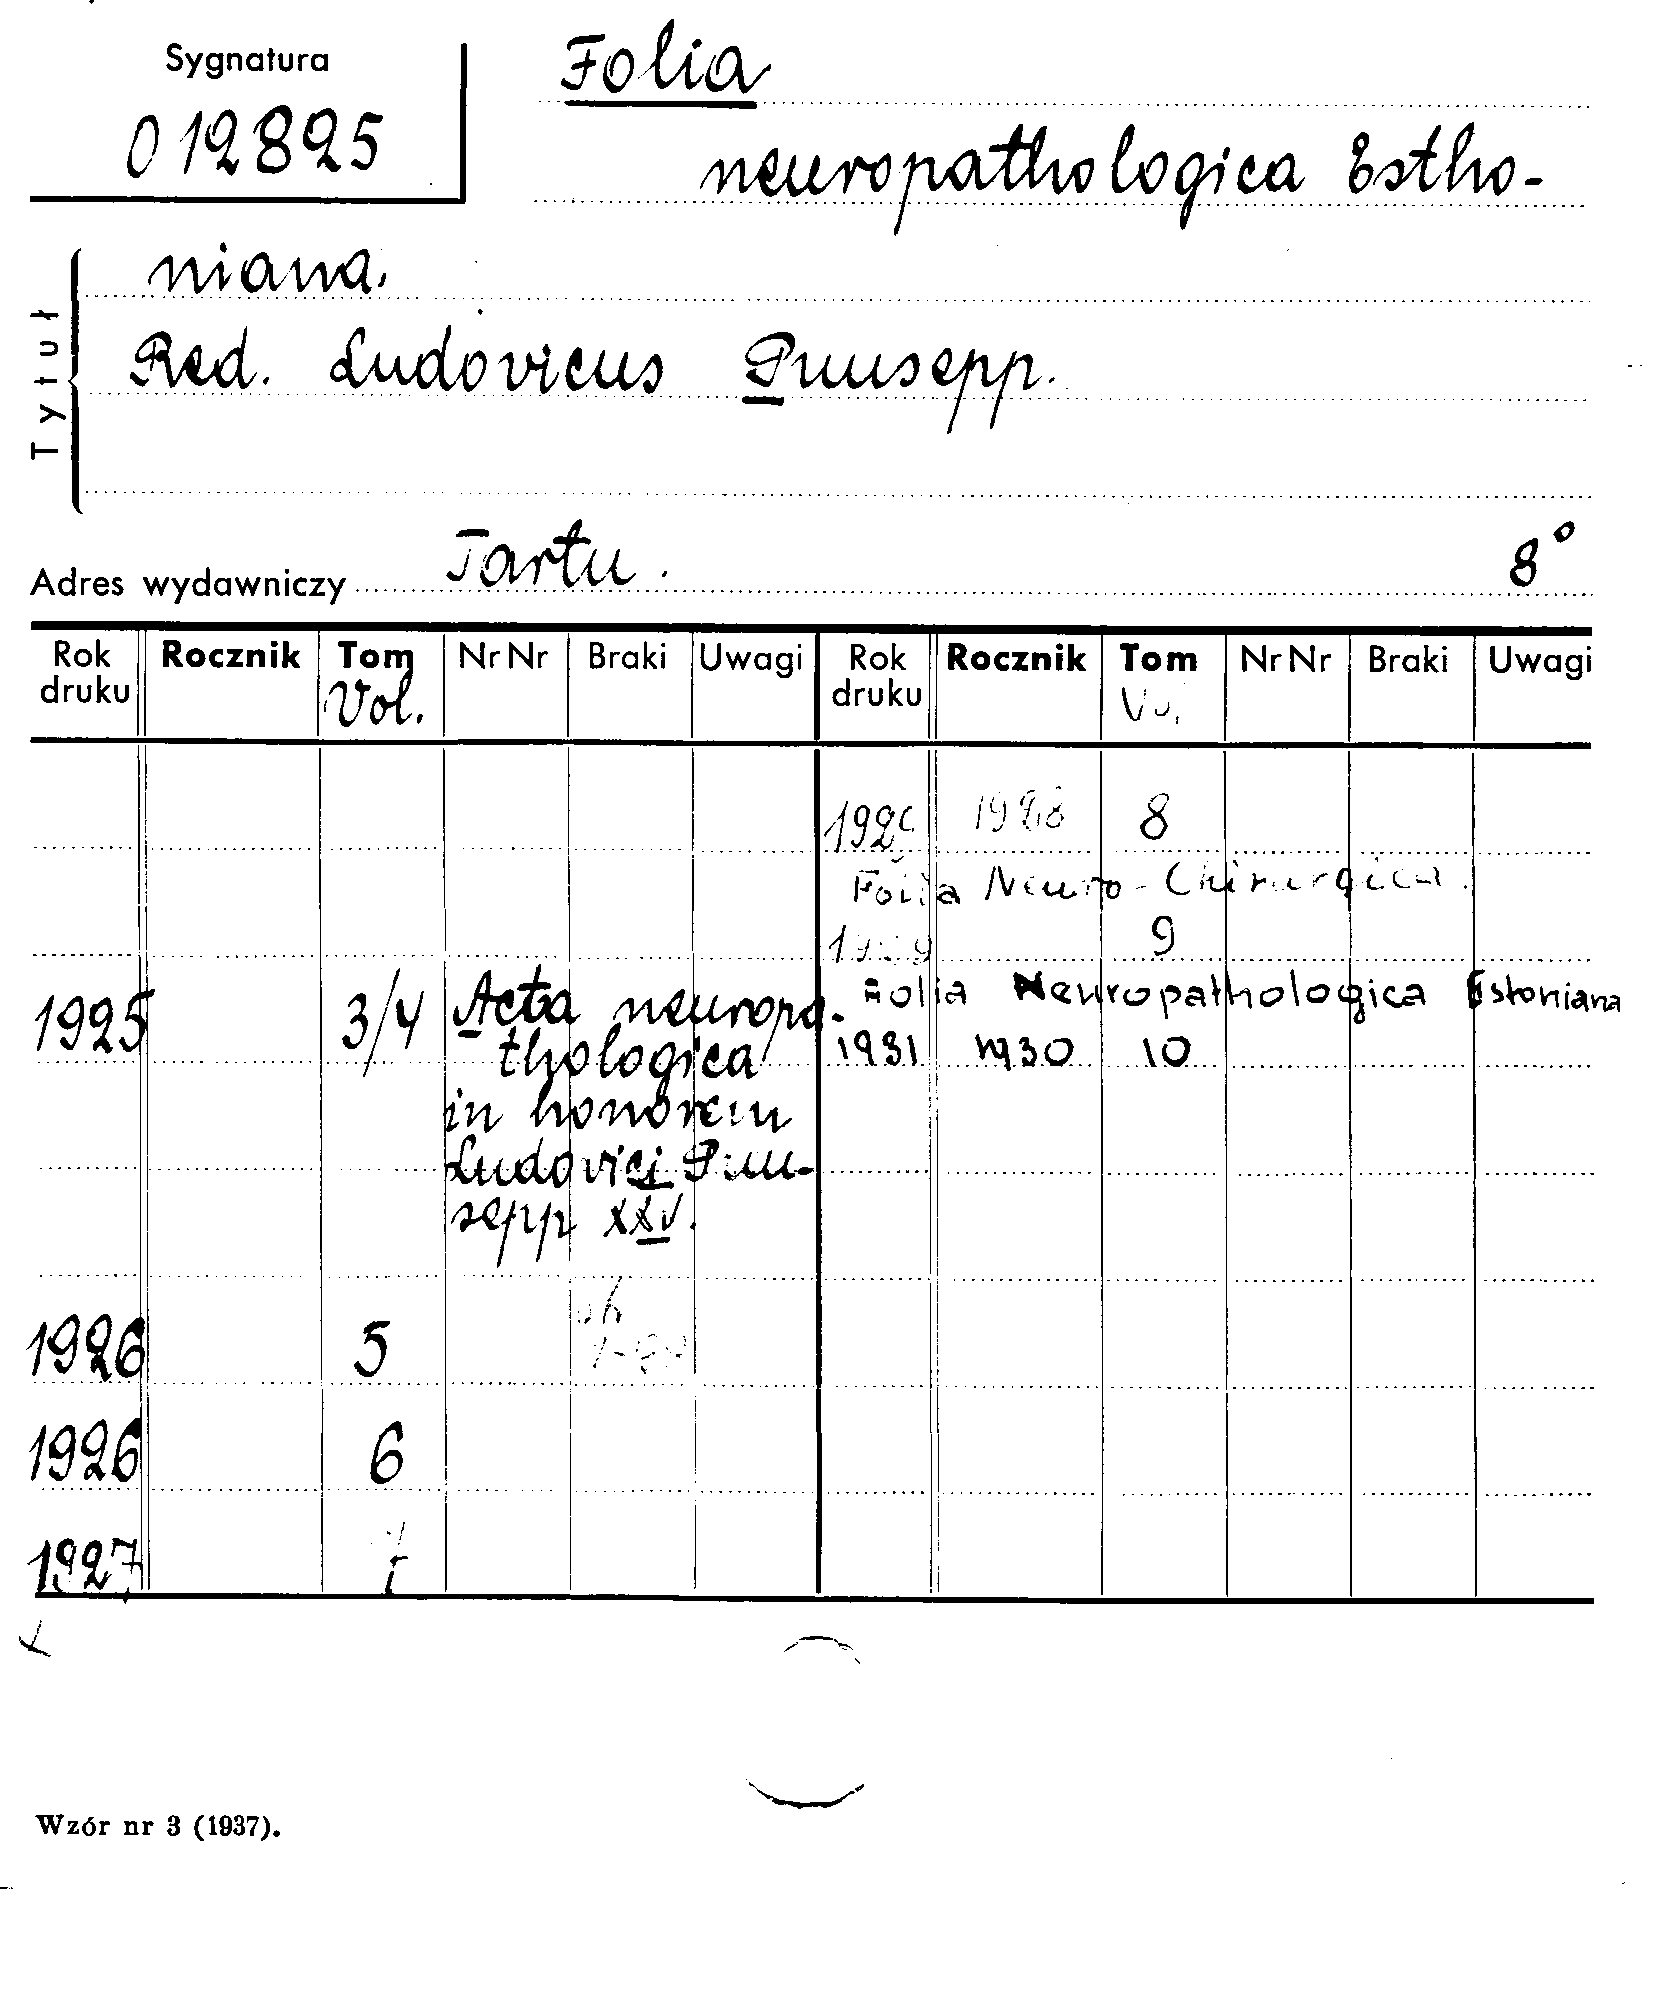 Sygnatura
012825
Folia
neuropathologica Estho-
niana.
Red. Ludovicus Puusepp.
Tytuł
Adres wydawniczy Tartu. 8°
Rok druku Rocznik Tom Nr Nr Braki Uwagi Rok druku Rocznik Tom Nr Nr Braki Uwagi
Vol.
1928 8
Folia Neuro-Chirurgica.
9
Folia Neuropathologica Estoniana
1931 1930 10
1925 3/4 Acta neuropa-
thologica
in honorem
Ludovici Puu-
sepp XXV.
1926 5
1926 6
1927
Wzór nr 3 (1937).